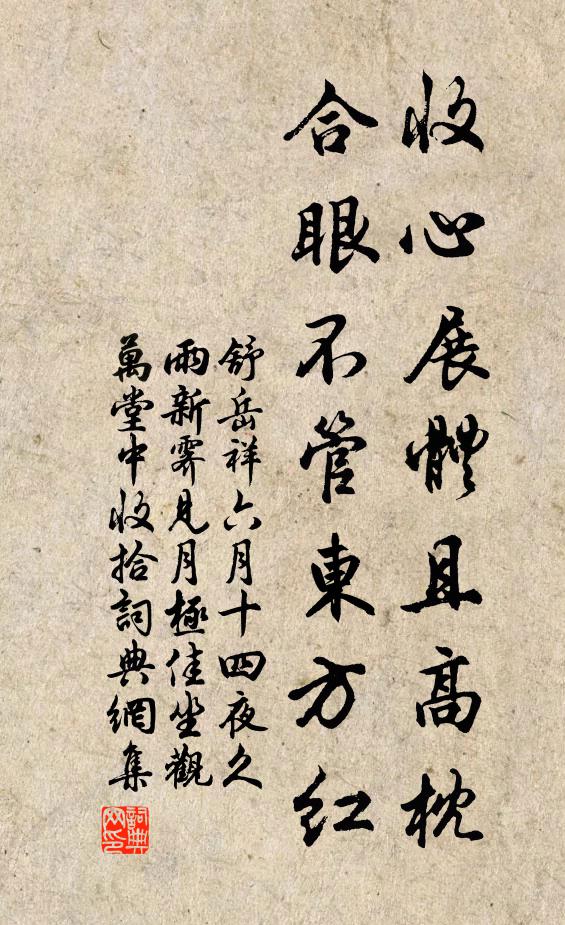 收心展體且高枕
合眼不管東方紅
舒岳祥六月十四夜久
雨新霽見月極佳坐觀
萬堂中收拾詞典網集
詞典網印